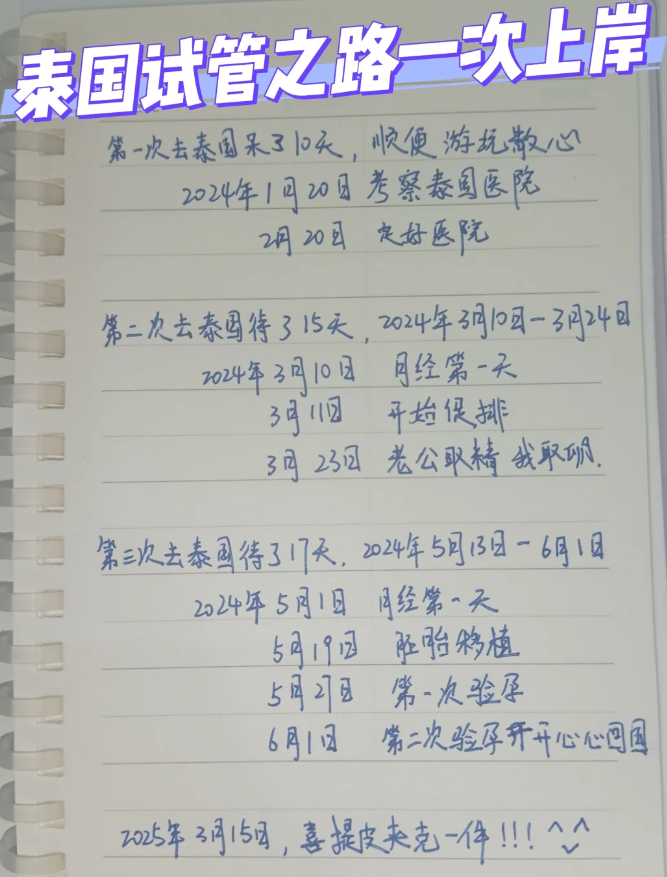 泰国试管之路一次上岸
第一次去泰国呆了10天，顺便游玩散心
2024年1月20日 考察泰国医院
2月20日 定好医院
第二次去泰国待了15天，2024年3月10日－3月24日
2024年3月10日 月经第一天
3月11日 开始促排
3月23日 老公取精 我取卵.
第三次去泰国待了17天，2024年5月13日－6月1日
2024年5月1日 月经第一天
5月19日 胚胎移植
5月27日 第一次验孕
6月1日 第二次验孕开开心心回国
2025年3月15日，喜提皮夹克一件!!! ^^